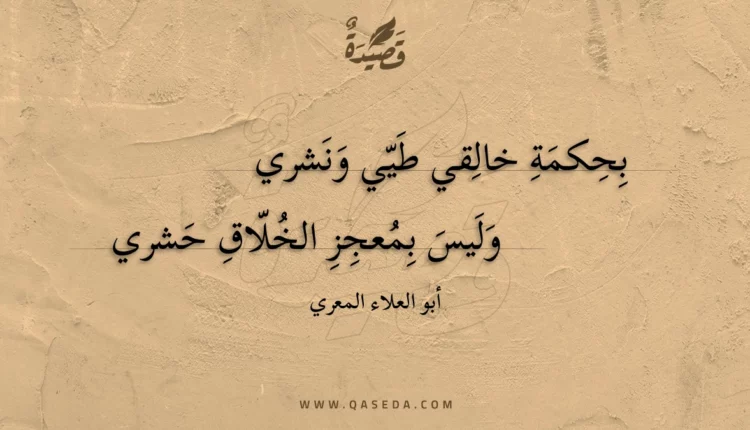 قَصِيدَةٌ
بِحِكمَةِ خالِقي طَيّي وَنَشري
وَلَيسَ بِمُعجِزِ الخُلّاقِ حَشري
أبو العلاء المعري
WWW.QASEDA.COM